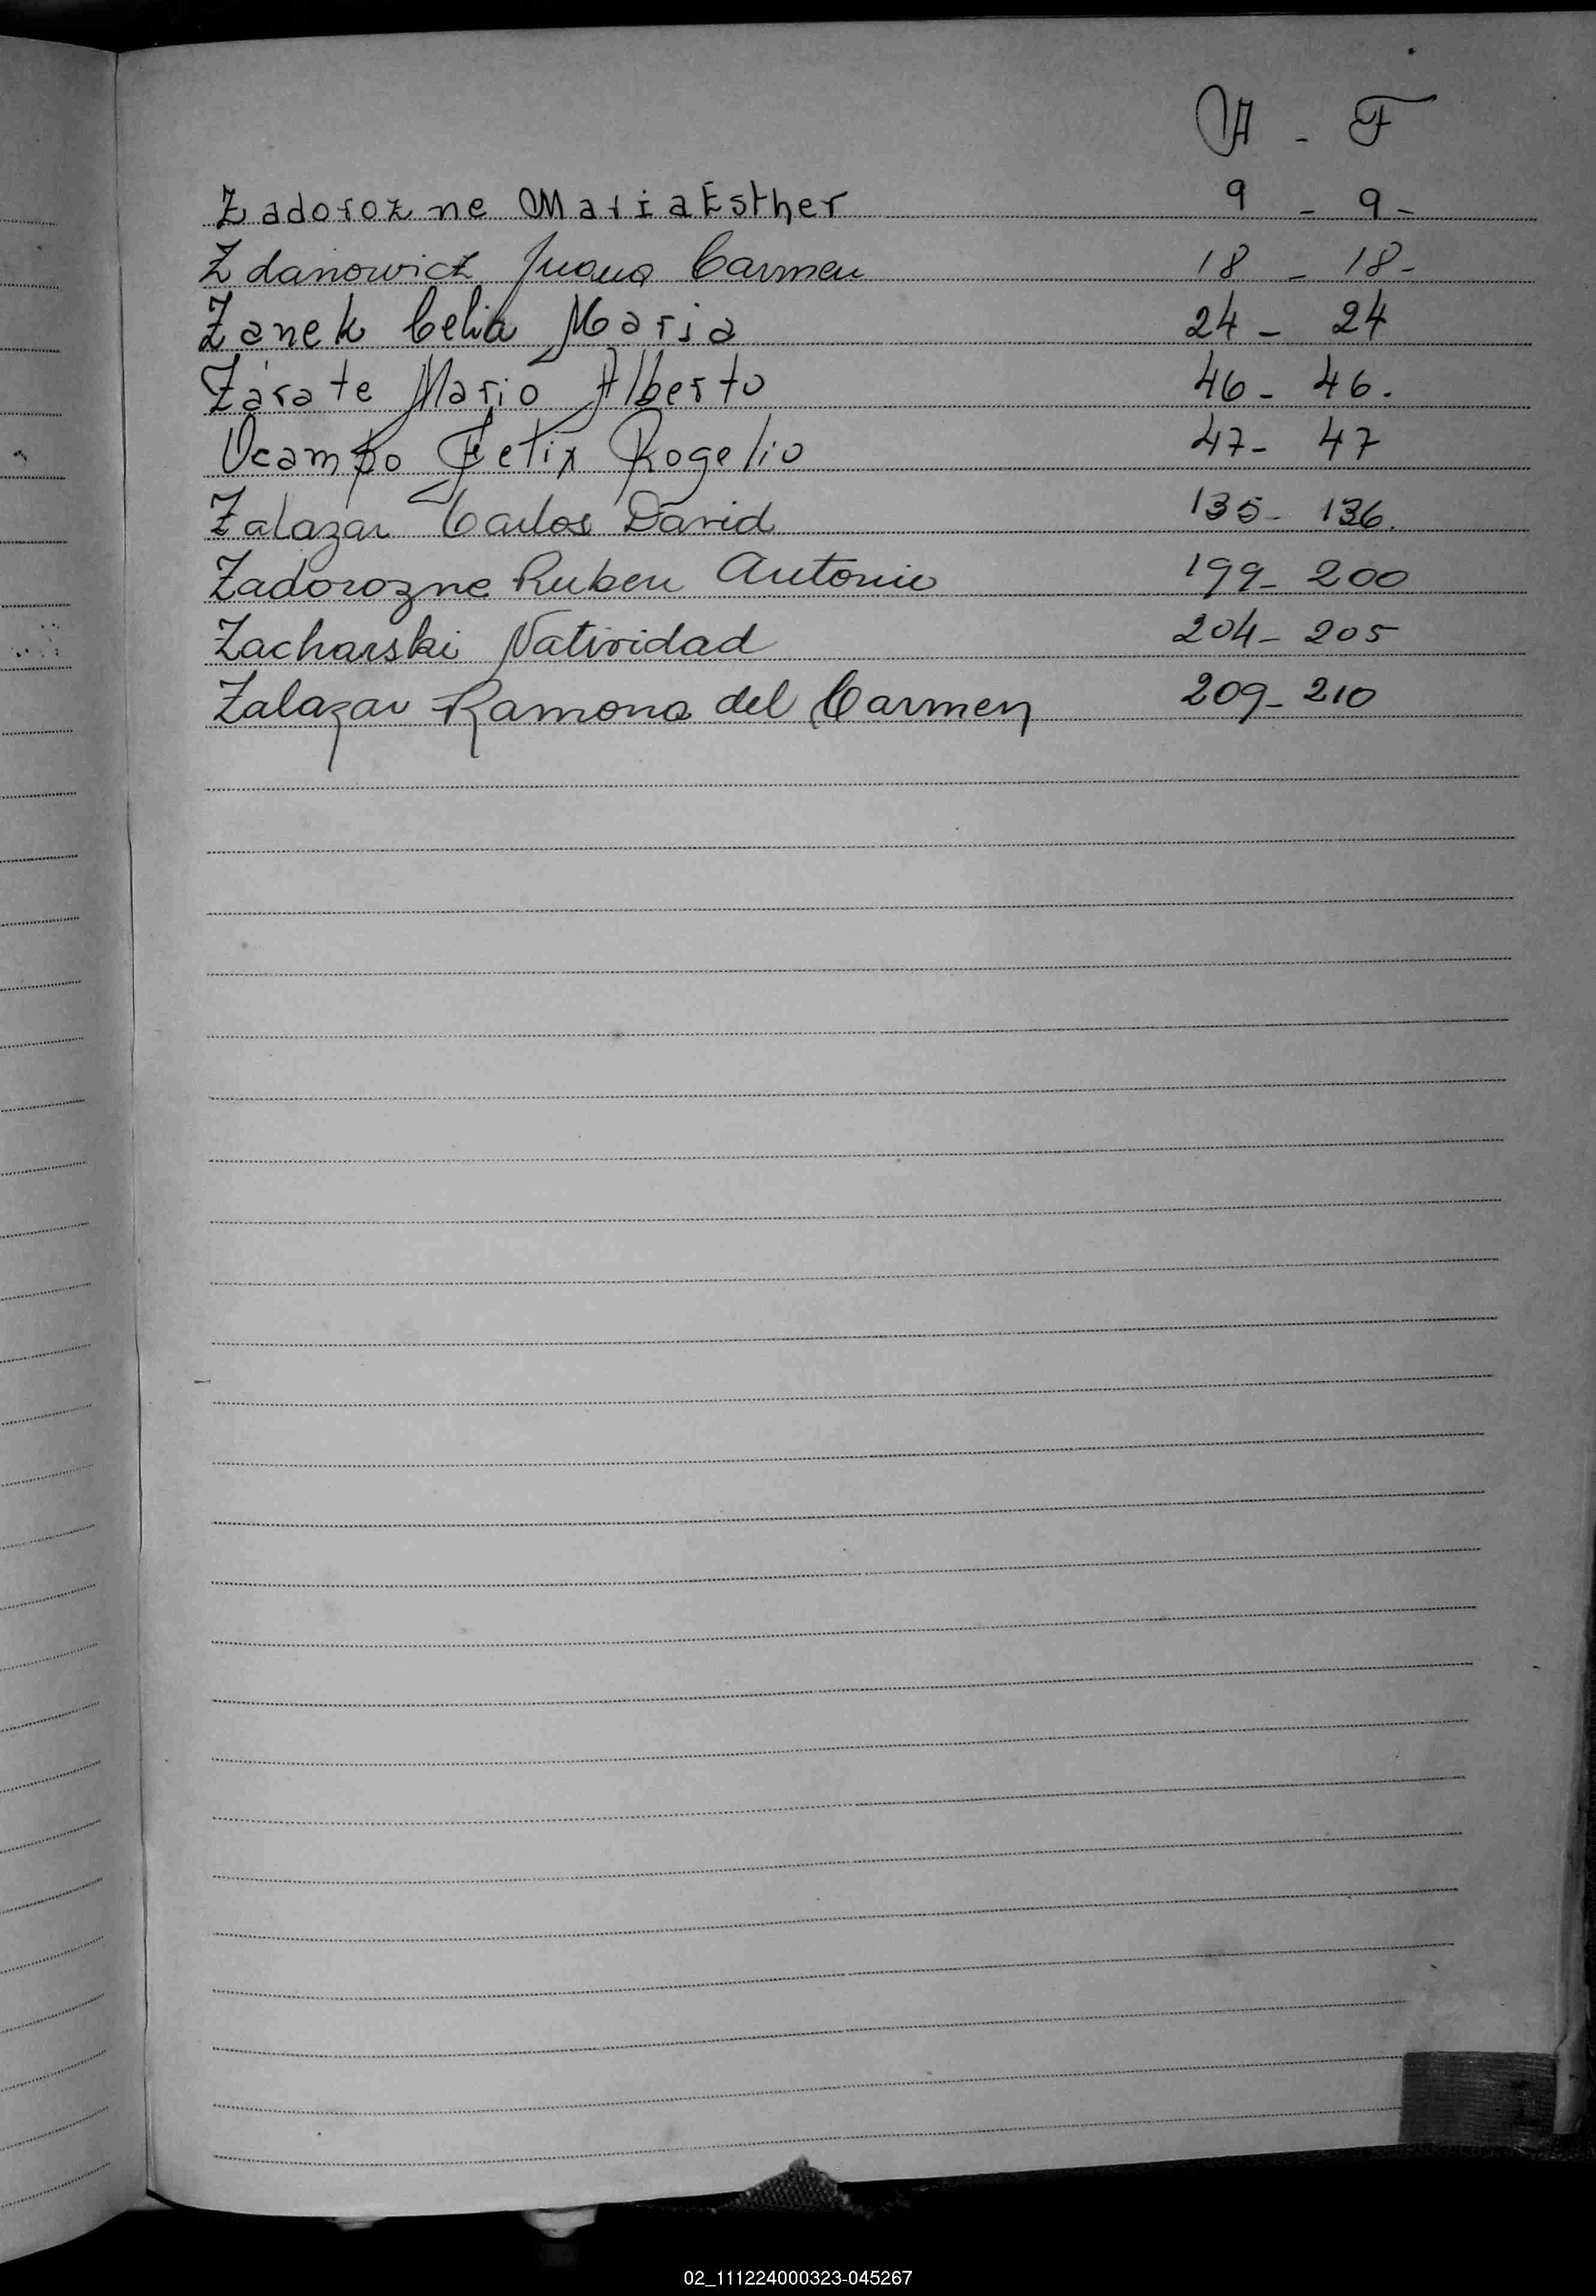 A - F
Zadorozne Maria Esther 9 - 9-
Zdanowicz Juana Carmen 18 - 18-
Zanek Celia Maria 24 - 24
Zárate Mario Alberto 46 - 46.
Ocampo Felix Rogelio 47- 47
Zalazar Carlos David 135- 136.
Zadorozne Ruben Antonio 199- 200
Zacharski Natividad 204- 205
Zalazar Ramona del Carmen 209- 210
02_111224000323-045267